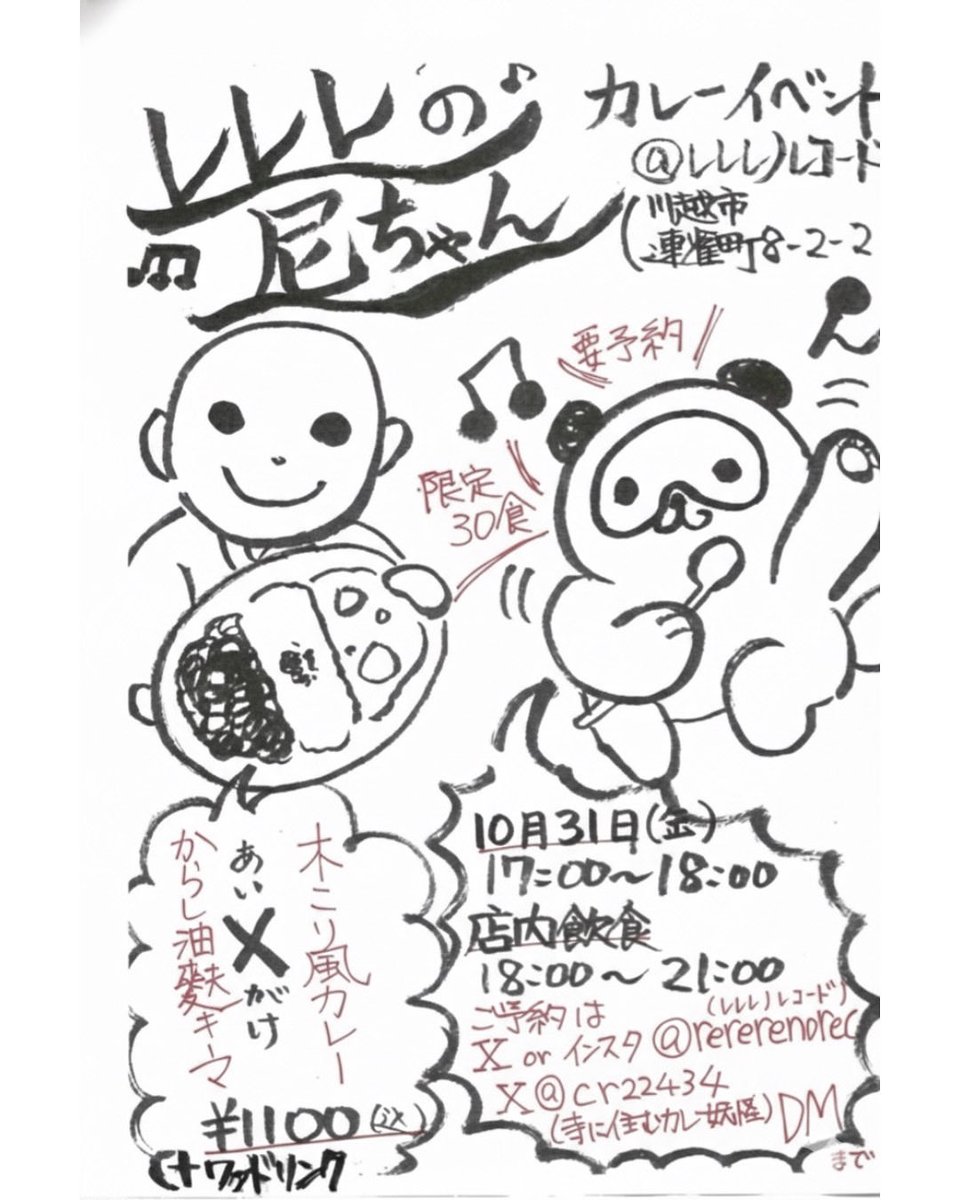 レレレの
尼ちゃん
カレーイベント
@レレレノレコード
(川越市
連雀町8-2-2
要予約
限定
30食
木こり風カレー
あい✕がけ
からし油麩キーマ
¥1100
(+ワンドリンク
10月31日(金)
17:00〜18:00
店内飲食
18:00〜21:00
ご予約は
(レレレノレコード)
X or インスタ @rererenorec
X @cr22434
(寺に住むカレー妖怪) DM
まで